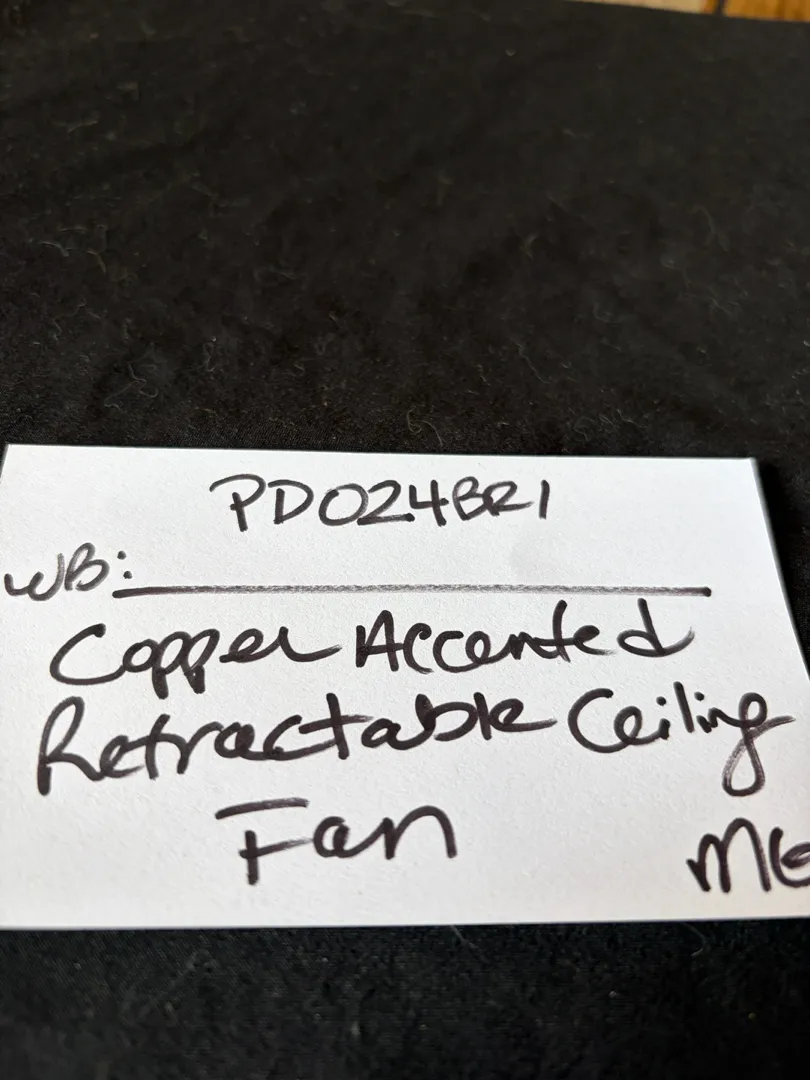 PD024BR1
WB:
Copper Accented
Retractable Ceiling
Fan